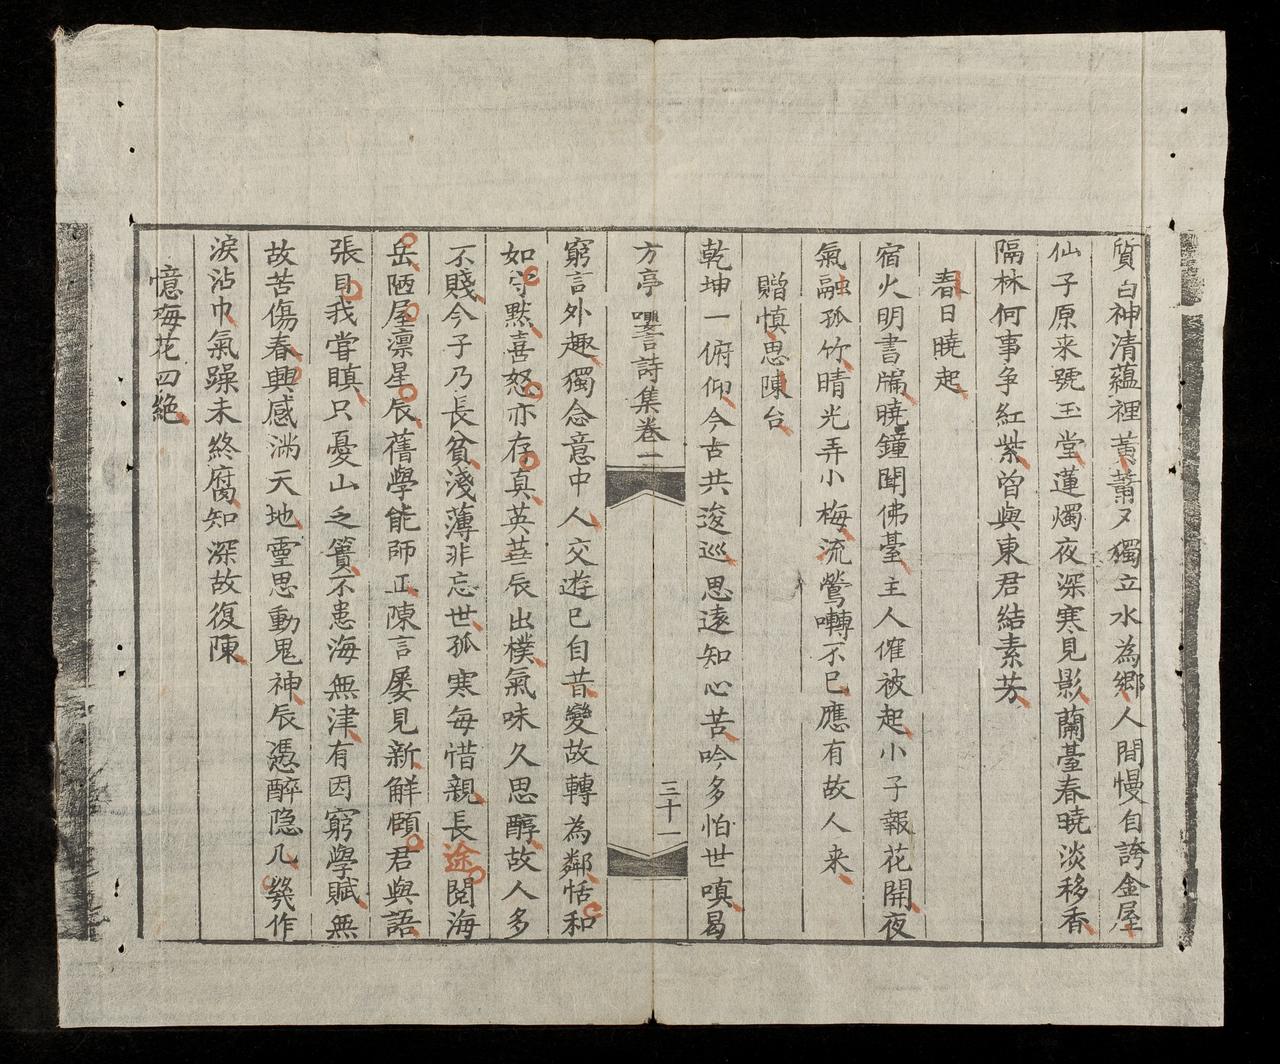 質白神清蘊裡黃薰又獨立水為鄉人間慢自誇金屋
仙子原来號玉堂蓮燭夜深寒見影蘭臺春曉淡移香
隔林何事争紅紫曾與東君結素芳
春日曉起
宿火明書牖曉鐘聞佛臺主人催被起小子報花開夜
氣融孤竹晴光弄小梅流鶯囀不已應有故人来
贈慎思陳台
乾坤一俯仰今古共逡巡思遠知心苦吟多怕世嗔曷
方亭嚶言詩集卷一
三十一
窮言外趣獨念意中人交遊已自昔變故轉為鄰恬和
如守黙喜怒亦存真英華辰出樸氣味久思醇故人多
不賤今子乃長貧淺薄非忘世孤寒每惜親長途閱海
岳陋屋凛星辰舊學能師正陳言屡見新解頤君與語
張目我甞瞋只憂山乏簣不患海無津有因窮學賦無
故苦傷春興感滿天地霊思動鬼神辰憑醉隐几幾作
淚沾巾氣躁未終腐知深故復陳
憶梅花四絶